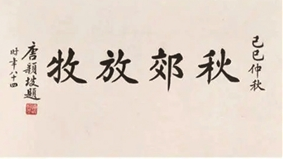 己巳仲秋
秋郊放牧
唐穎坡題
时年八十四